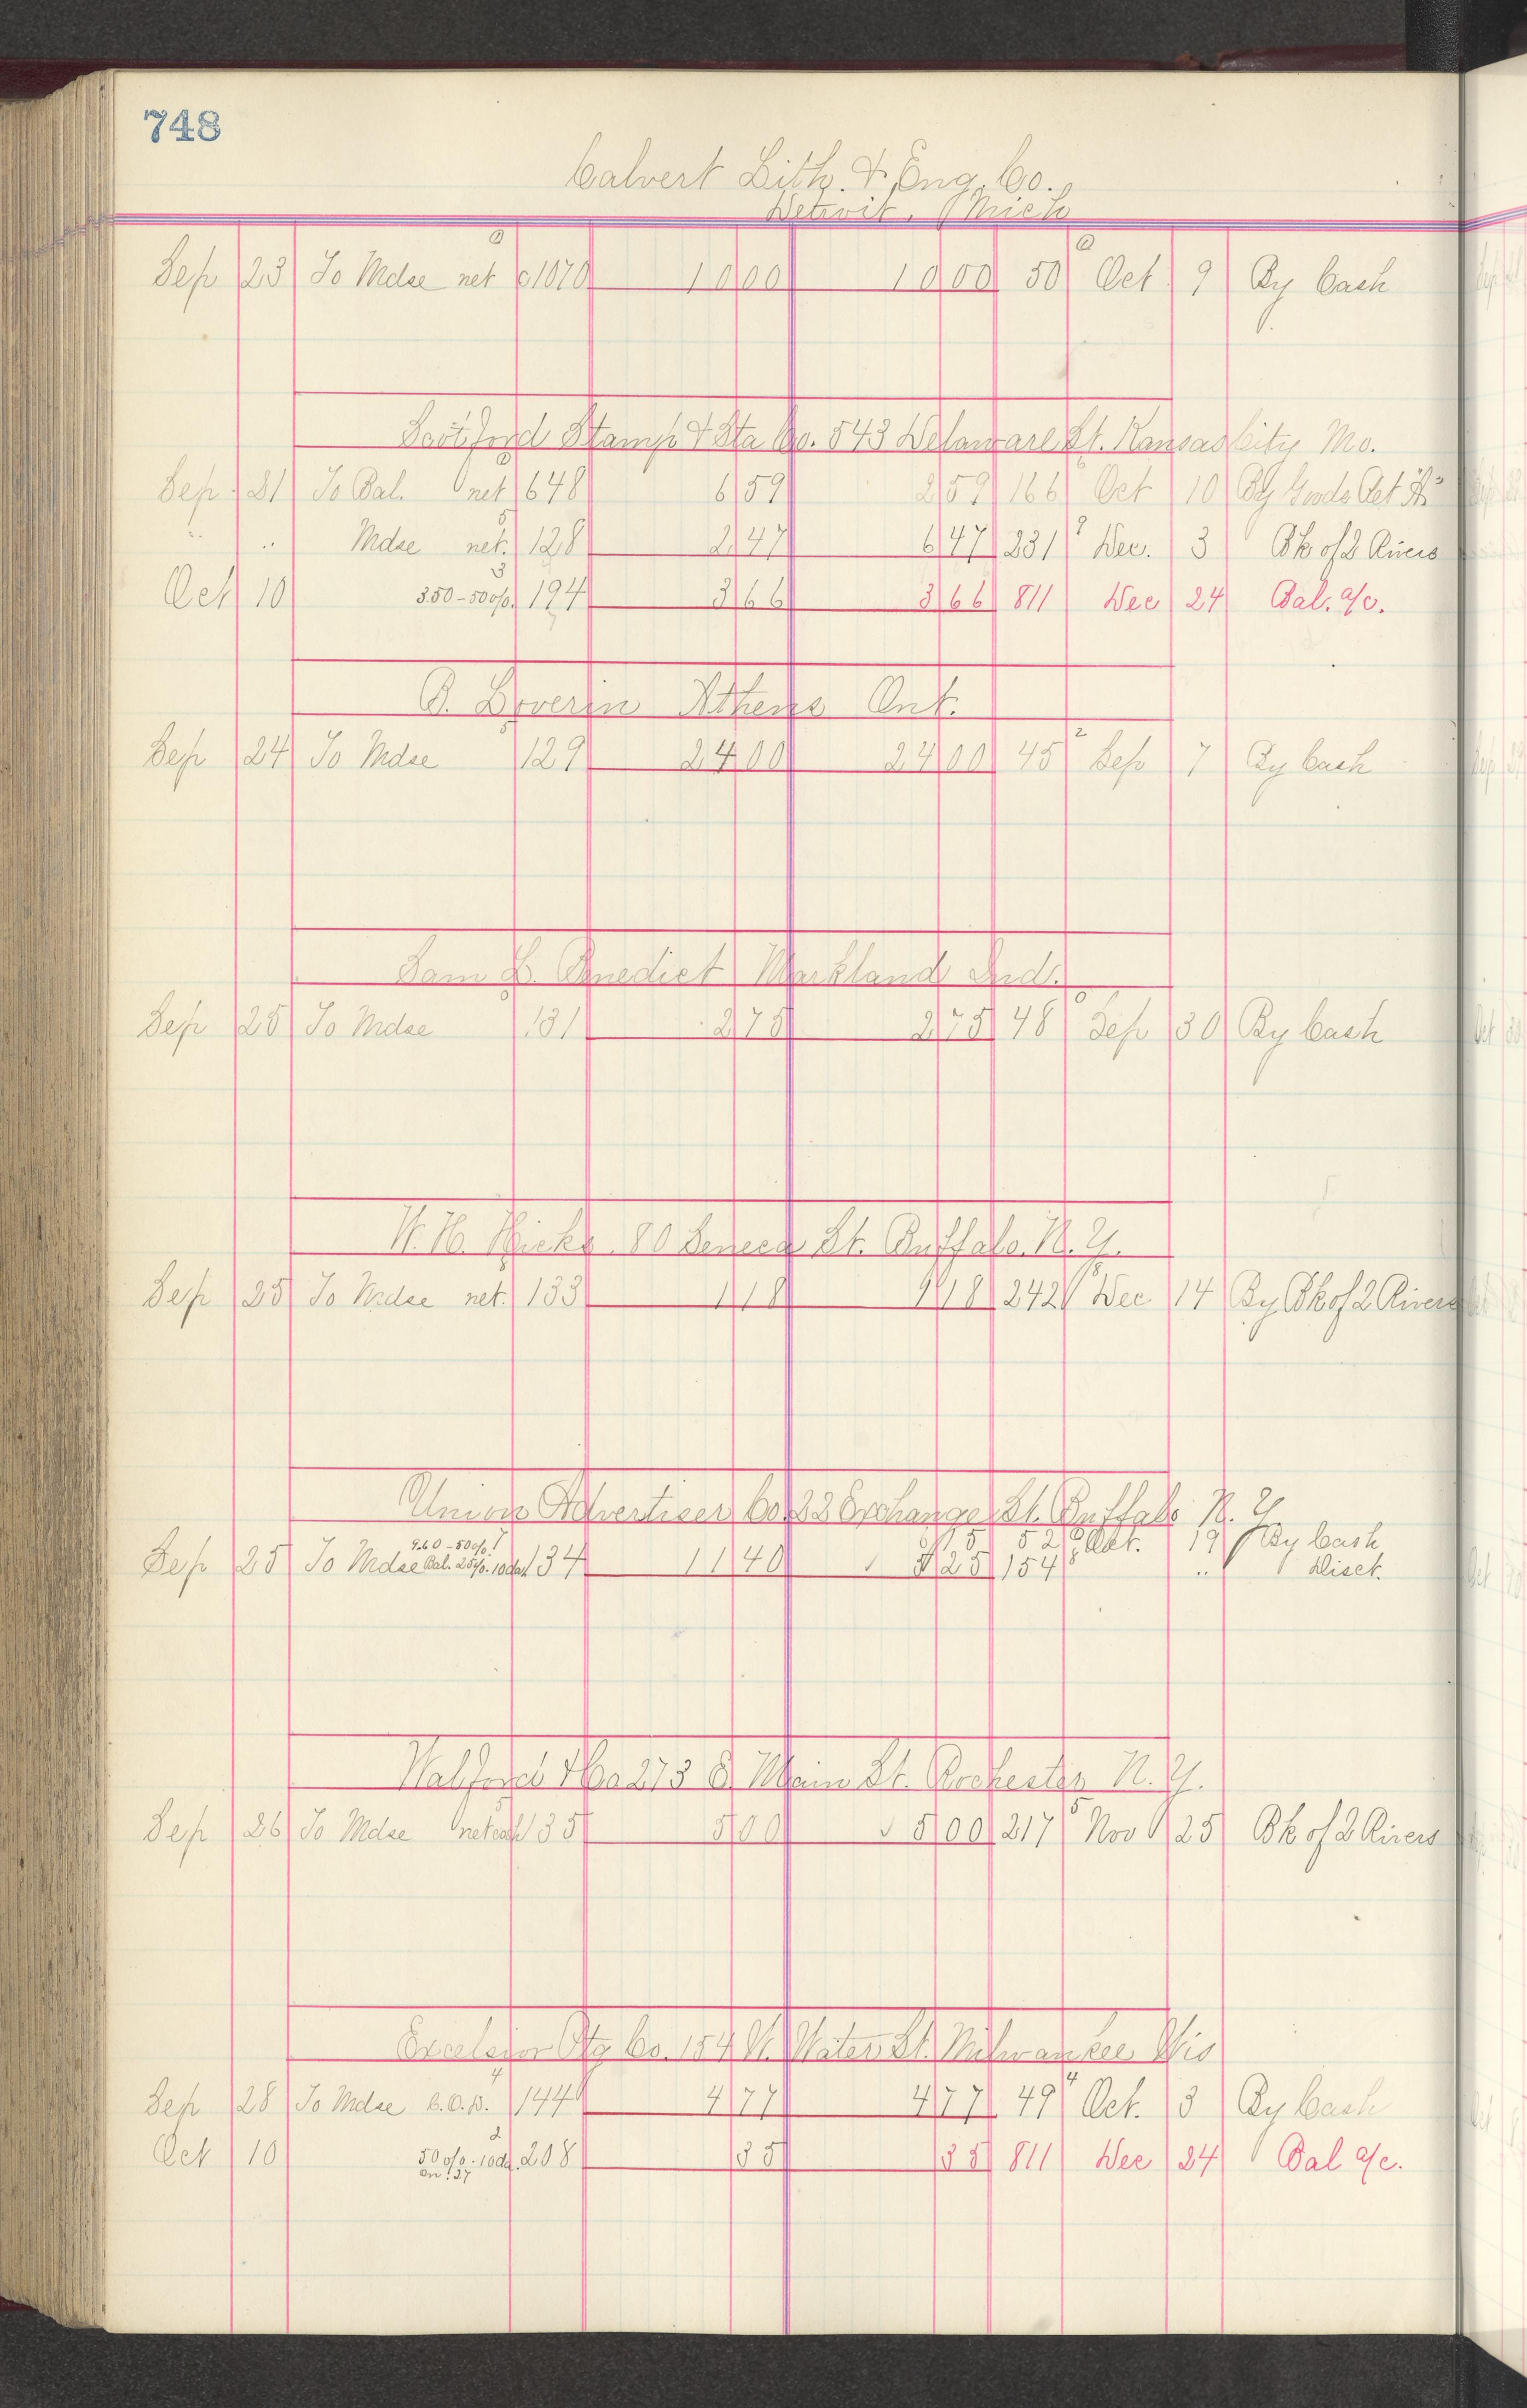 748
Calvert Lith. & Eng. Co.
Detroit, Mich
Sep 23 To Mdse net 1070 10 00 10 00 50 Oct 9 By Cash
Scotford Stamp & Sta Co. 543 Delaware St. Kansas City Mo.
Sep 21 To Bal. net 648 6 59 2 59 166 Oct 10 By Goods Ret'd
" " Mdse net. 128 2 47 6 47 231 Dec. 3 Bk of 2 Rivers
Oct 10 3.50-50%. 194 3 66 3 66 811 Dec 24 Bal. a/c.
B. Loverin Athens Ont.
Sep 24 To Mdse 129 24 00 24 00 45 Sep 7 By Cash
Sam L. Benedict Markland Ind.
Sep 25 To Mdse 131 2 75 2 75 48 Sep 30 By Cash
W. H. Hicks 80 Seneca St. Buffalo. N. Y.
Sep 25 To Mdse net. 133 1 18 1 18 242 Dec 14 By Bk of 2 Rivers
Union Advertiser Co. 22 Exchange St. Buffalo N. Y.
9.60-50% 8 15 52 Oct. 19 By Cash
Sep 25 To Mdse Bal. 25%. 10da. 134 11 40 3 25 154 " Disct.
Walford & Co 273 E Main St. Rochester N. Y.
Sep 26 To Mdse net cash 135 5 00 5 00 217 Nov 25 Bk of 2 Rivers
Excelsior Ptg Co. 154 W. Water St. Milwaukee Wis
Sep 28 To Mdse C.O.D. 144 4 77 4 77 49 Oct. 3 By Cash
Oct 10 50%. 10da. 208 35 35 811 Dec 24 Bal a/c.
on .27